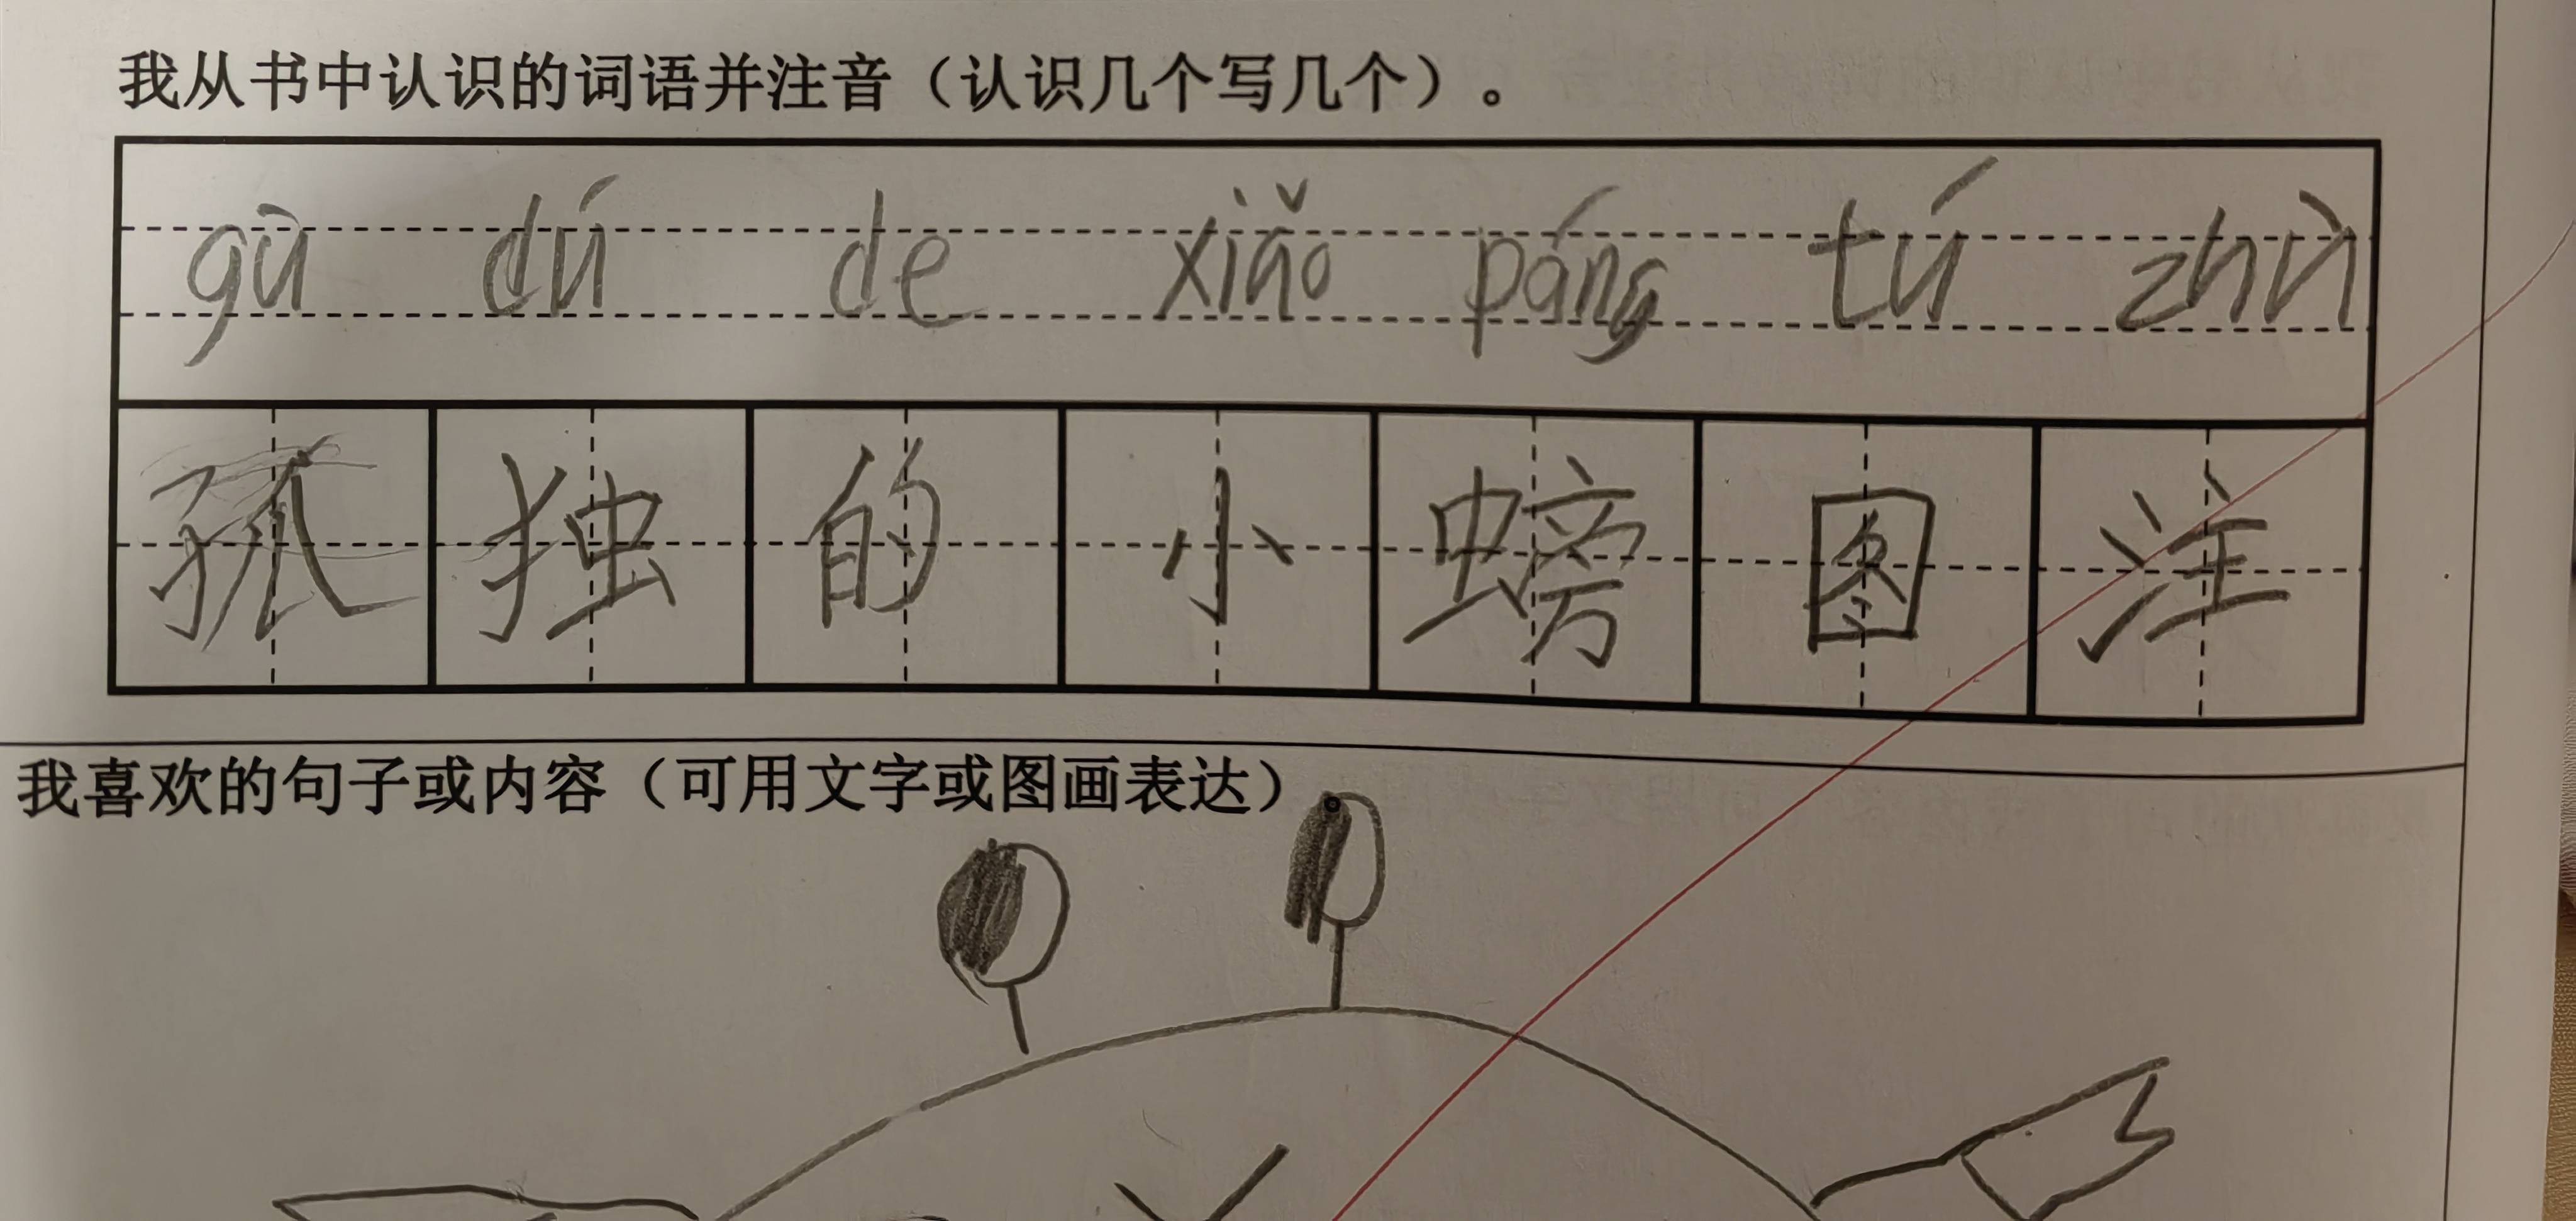 我从书中认识的词语并注音（认识几个写几个）。
gū dú de xiǎo páng tú zhù
孤独的小螃图注
我喜欢的句子或内容（可用文字或图画表达）